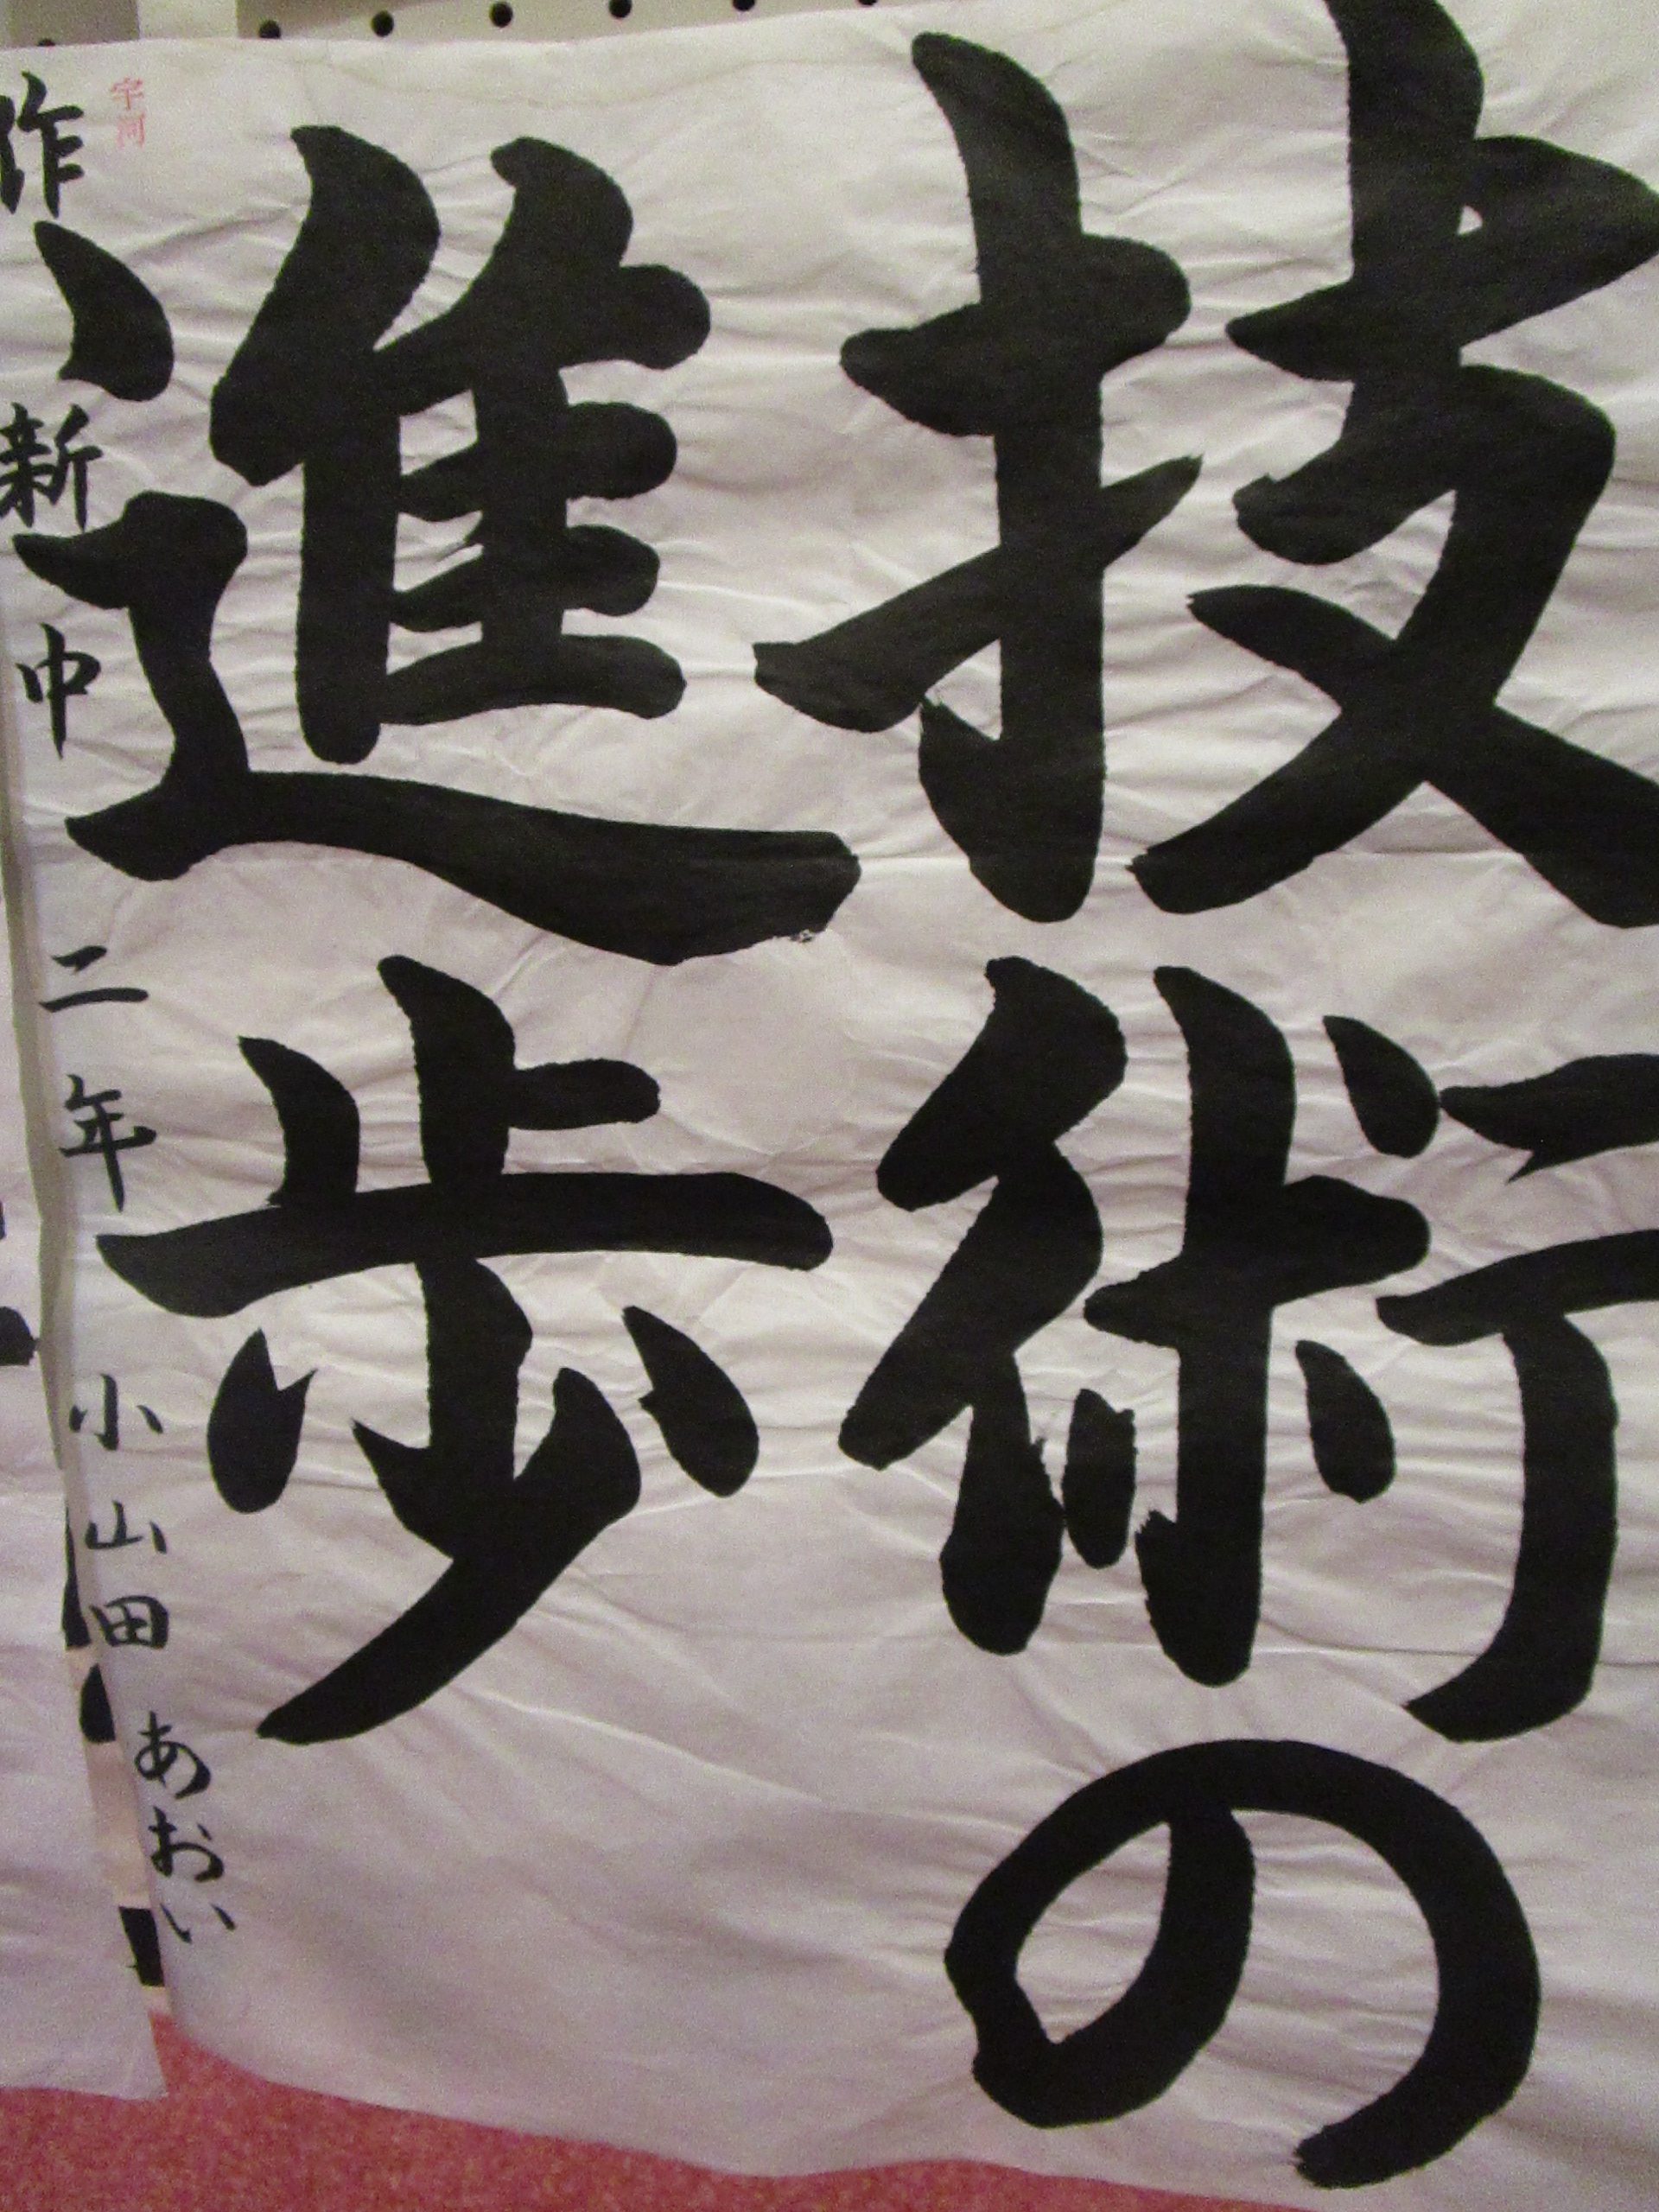 技術の
進歩
作新中二年 小山田あおい
宇河